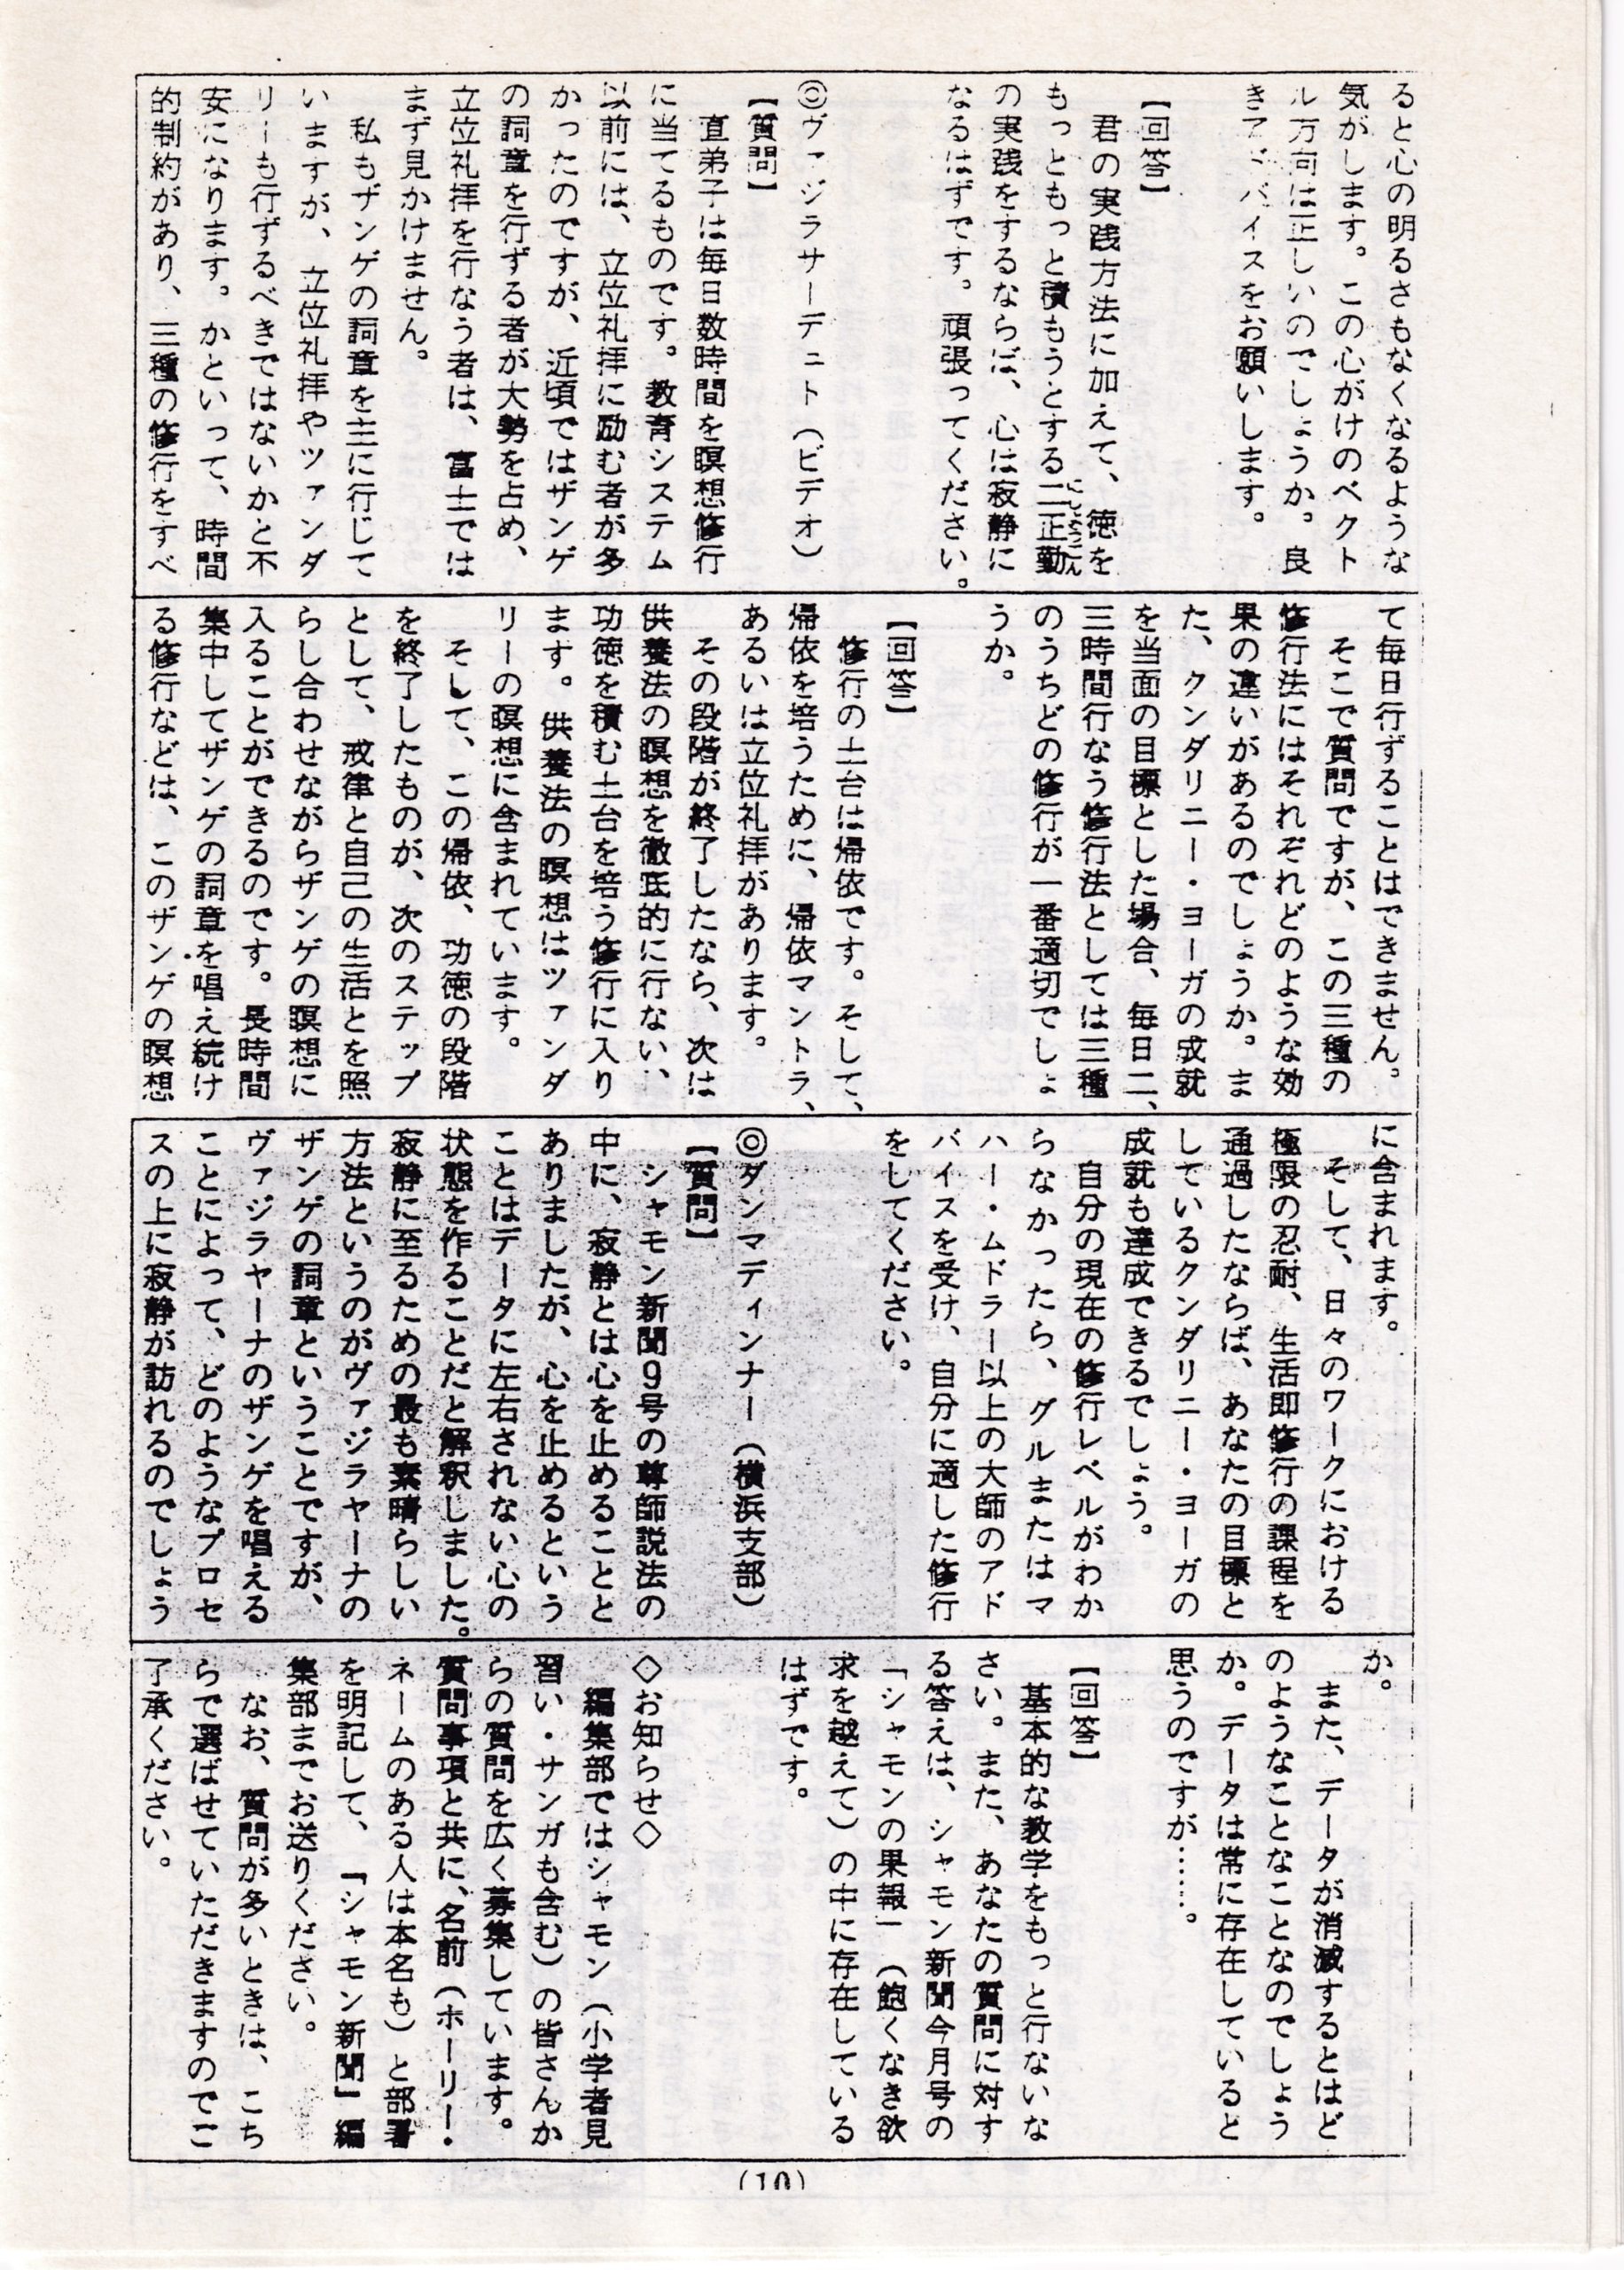 ると心の明るさもなくなるような
気がします。この心がけのベクト
ル方向は正しいのでしょうか。良
きアドバイスをお願いします。
【回答】
君の実践方法に加えて、徳を
もっともっと積もうとする二正勤
にしょうごん
の実践をするならば、心は寂静に
なるはずです。頑張ってください。
◎ヴァジラサーデュト(ビデオ)
【質問】
直弟子は毎日数時間を瞑想修行
に当てるものです。教育システム
以前には、立位礼拝に励む者が多
かったのですが、近頃ではザンゲ
の詞章を行ずる者が大勢を占め、
立位礼拝を行なう者は、富士では
まず見かけません。
私もザンゲの詞章を主に行じて
いますが、立位礼拝やツァンダ
リーも行ずるべきではないかと不
安になります。かといって、時間
的制約があり、三種の修行をすべ
て毎日行ずることはできません。
そこで質問ですが、この三種の
修行法にはそれぞれどのような効
果の違いがあるのでしょうか。ま
た、クンダリニー・ヨーガの成就
を当面の目標とした場合、毎日二、
三時間行なう修行法としては三種
のうちどの修行が一番適切でしょ
うか。
【回答】
修行の土台は帰依です。そして、
帰依を培うために、帰依マントラ、
あるいは立位礼拝があります。
その段階が終了したなら、次は
供養法の瞑想を徹底的に行ない、
功徳を積む土台を培う修行に入り
ます。供養法の瞑想はツァンダ
リーの瞑想に含まれています。
そして、この帰依、功徳の段階
を終了したものが、次のステップ
として、戒律と自己の生活とを照
らし合わせながらザンゲの瞑想に
入ることができるのです。長時間
集中してザンゲの詞章を唱え続け
る修行などは、このザンゲの瞑想
に含まれます。
そして、日々のワークにおける
極限の忍耐、生活即修行の課程を
通過したならば、あなたの目標と
しているクンダリニー・ヨーガの
成就も達成できるでしょう。
自分の現在の修行レベルがわか
らなかったら、グルまたはマ
ハー・ムドラー以上の大師のアド
バイスを受け、自分に適した修行
をしてください。
◎ダンマディンナー(横浜支部)
【質問】
シャモン新聞9号の尊師説法の
中に、寂静とは心を止めることと
ありましたが、心を止めるという
ことはデータに左右されない心の
状態を作ることだと解釈しました。
寂静に至るための最も素晴らしい
方法というのがヴァジラヤーナの
ザンゲの詞章ということですが、
ヴァジラヤーナのザンゲを唱える
ことによって、どのようなプロセ
スの上に寂静が訪れるのでしょう
か。
また、データが消滅するとはど
のようなことなことなのでしょう
か。データは常に存在していると
思うのですが……。
【回答】
基本的な教学をもっと行ないな
さい。また、あなたの質問に対す
る答えは、シャモン新聞今月号の
「シャモンの果報」(飽くなき欲
求を越えて)の中に存在している
はずです。
◇お知らせ◇
編集部ではシャモン(小学者見
習い・サンガも含む)の皆さんか
らの質問を広く募集しています。
質問事項と共に、名前(ホーリー・
ネームのある人は本名も)と部署
を明記して、「シャモン新聞」編
集部までお送りください。
なお、質問が多いときは、こち
らで選ばせていただきますのでご
了承ください。
(10)